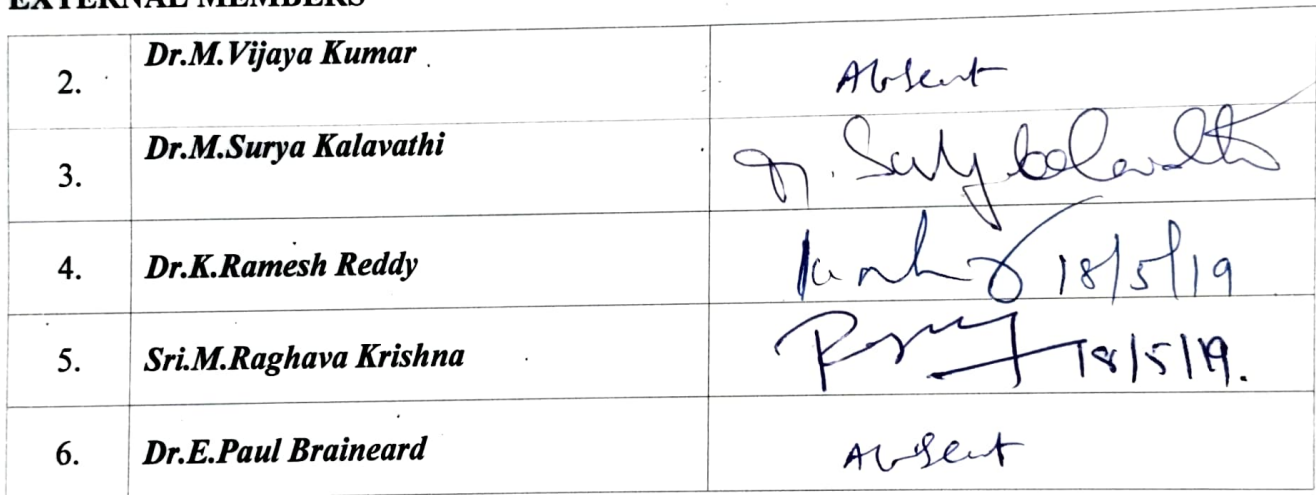 EXTERNAL MEMBERS
2. Dr.M.Vijaya Kumar Absent
3. Dr.M.Surya Kalavathi
4. Dr.K.Ramesh Reddy 18/5/19
5. Sri.M.Raghava Krishna 18/5/19.
6. Dr.E.Paul Braineard Absent